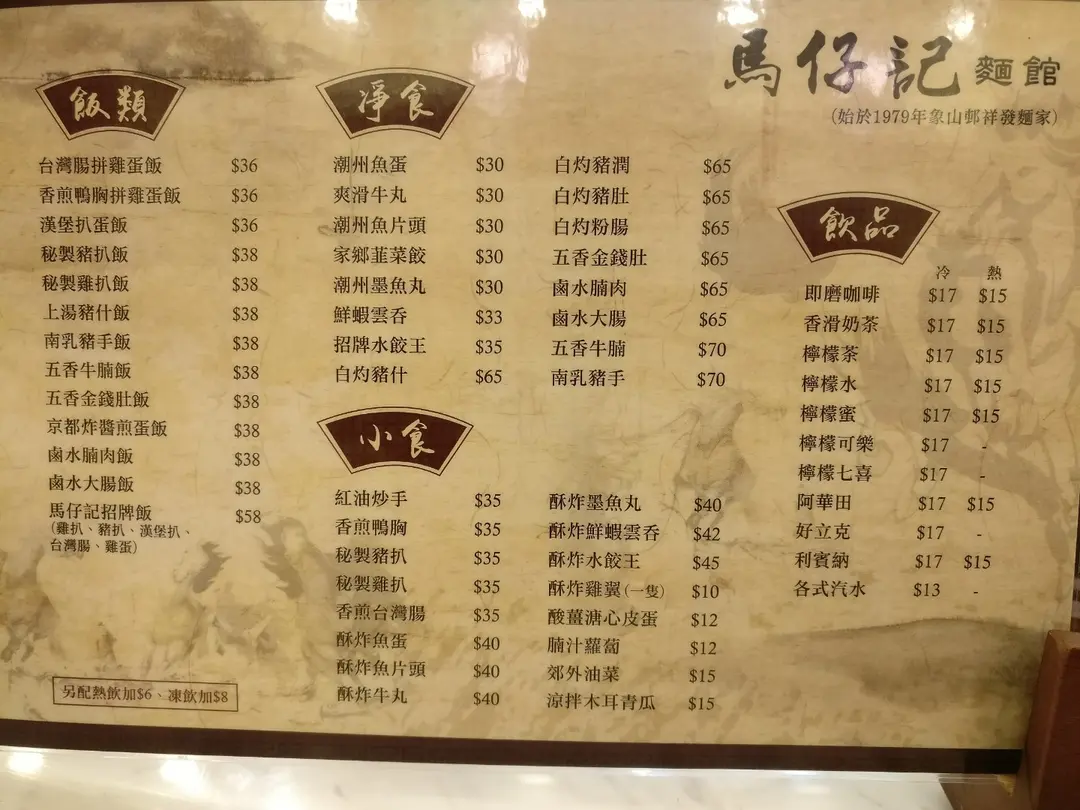 馬仔記 麵館
(始於1979年象山邨祥發麵家)
飯類
台灣腸拼雞蛋飯 $36
香煎鴨胸拼雞蛋飯 $36
漢堡扒蛋飯 $36
秘製豬扒飯 $38
秘製雞扒飯 $38
上湯豬什飯 $38
南乳豬手飯 $38
五香牛腩飯 $38
五香金錢肚飯 $38
京都炸醬煎蛋飯 $38
鹵水腩肉飯 $38
鹵水大腸飯 $38
馬仔記招牌飯 $58
(雞扒、豬扒、漢堡扒、
台灣腸、雞蛋)
另配熱飲加$6、凍飲加$8
淨食
潮州魚蛋 $30
爽滑牛丸 $30
潮州魚片頭 $30
家鄉韮菜餃 $30
潮州墨魚丸 $30
鮮蝦雲吞 $33
招牌水餃王 $35
白灼豬什 $65
白灼豬潤 $65
白灼豬肚 $65
白灼粉腸 $65
五香金錢肚 $65
鹵水腩肉 $65
鹵水大腸 $65
五香牛腩 $70
南乳豬手 $70
小食
紅油炒手 $35
香煎鴨胸 $35
秘製豬扒 $35
秘製雞扒 $35
香煎台灣腸 $35
酥炸魚蛋 $40
酥炸魚片頭 $40
酥炸牛丸 $40
酥炸墨魚丸 $40
酥炸鮮蝦雲吞 $42
酥炸水餃王 $45
酥炸雞翼(一隻) $10
酸薑溏心皮蛋 $12
腩汁蘿蔔 $12
郊外油菜 $15
涼拌木耳青瓜 $15
飲品
冷 熱
即磨咖啡 $17 $15
香滑奶茶 $17 $15
檸檬茶 $17 $15
檸檬水 $17 $15
檸檬蜜 $17 $15
檸檬可樂 $17 -
檸檬七喜 $17 -
阿華田 $17 $15
好立克 $17 -
利賓納 $17 $15
各式汽水 $13 -